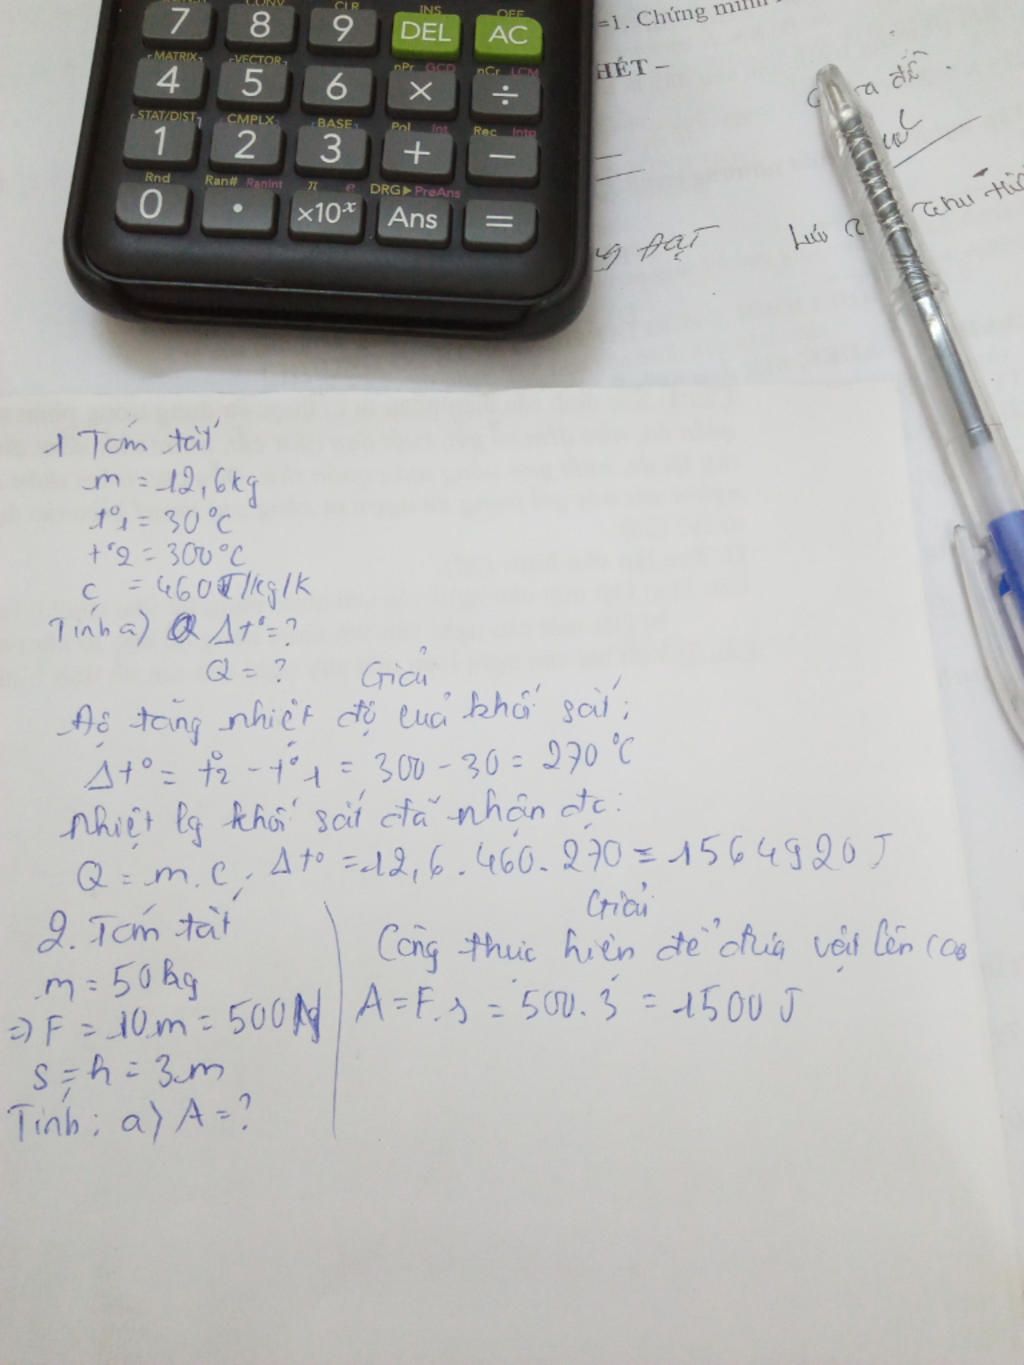 CLR
INS
OFF
7 8 9 DEL AC
MATRIX VECTOR nPr GCD nCr LCM
4 5 6 × ÷
STAT/DIST CMPLX BASE Pol Int Rec Intg
1 2 3 + −
Rnd Ran# RanInt π e DRG▶ PreAns
0 . ×10ˣ Ans =
=1. Chứng minh
HẾT –
ĐẠT
1 Tóm tắt
m = 12,6kg
t°1 = 30°C
t°2 = 300°C
c = 460J/kg/K
Tính a) Δt° = ?
Q = ?
Giải
Độ tăng nhiệt độ của khối sắt:
Δt° = t°2 - t°1 = 300 - 30 = 270°C
Nhiệt lg khối sắt đã nhận đc:
Q = m.c.Δt° = 12,6.460.270 = 1564920 J
2. Tóm tắt
m = 50kg
=> F = 10m = 500N
s = h = 3m
Tính: a) A = ?
Giải
Công thực hiện để đưa vật lên cao
A = F.s = 500.3 = 1500 J